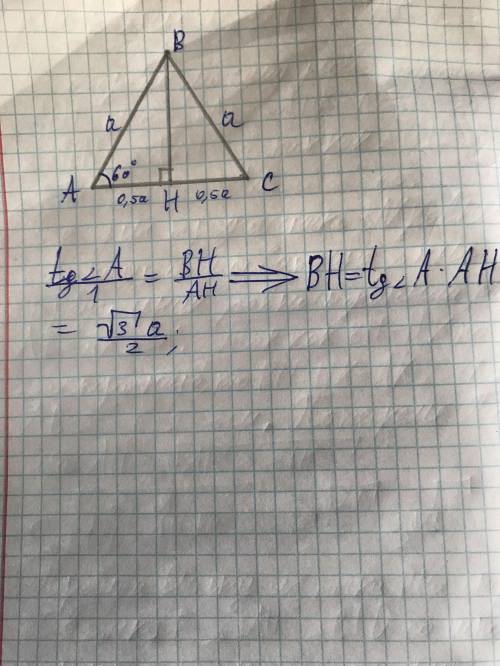 B
a a
60°
A 0,5a H 0,5a C
tg∠A/1 = BH/AH ⟹ BH=tg∠A·AH
= √3 a/2;